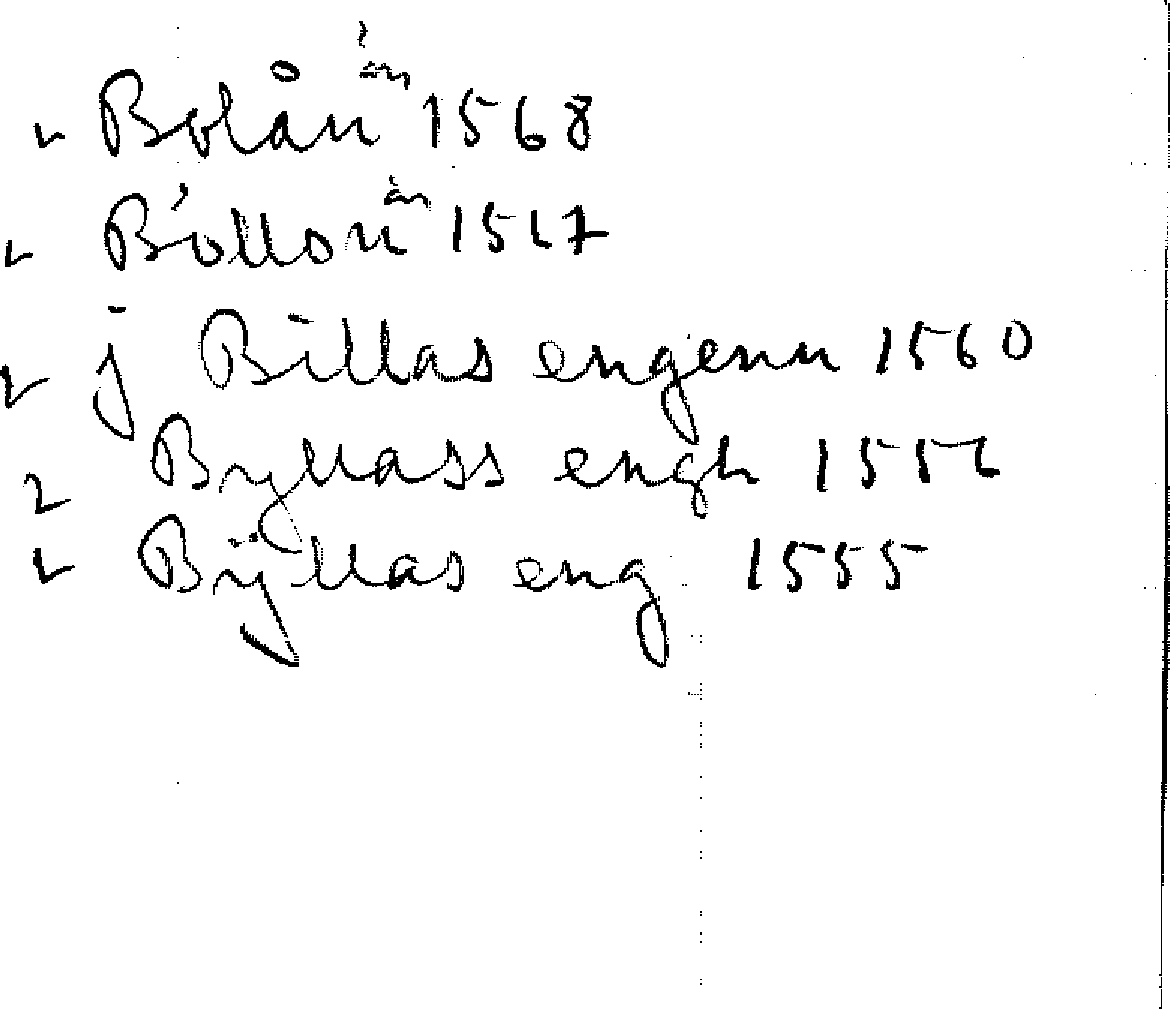 Bolån än 1568
Böllon än 1567
j Billas engenn 1560
Byllass engh 1556
Bÿllas eng 1555